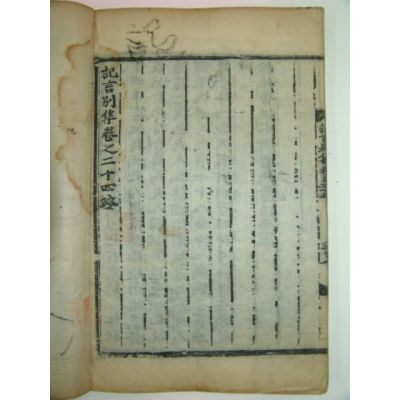 記言別集卷之二十四終